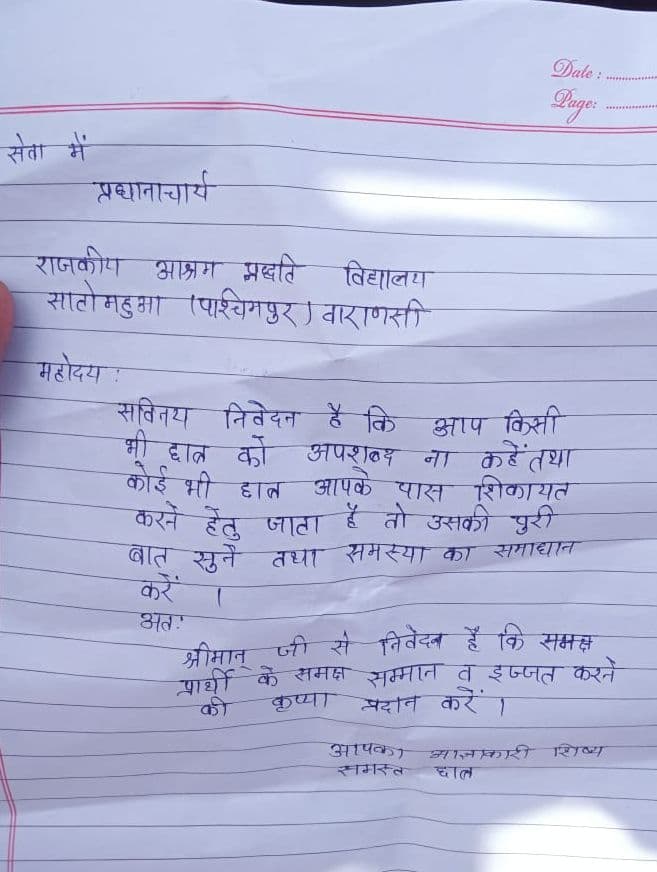 Date :
Page:
सेवा में
प्रधानाचार्य
राजकीय आश्रम प्रद्धति विद्यालय
सातोमहुआ (पाश्चिमपुर) वाराणसी
महोदय :
सविनय निवेदन है कि आप किसी
भी छात्र को अपशब्द ना कहें तथा
कोई भी छात्र आपके पास शिकायत
करने हेतु जाता है तो उसकी पुरी
बात सुने तथा समस्या का समाधान
करें ।
अतः
श्रीमान् जी से निवेदन है कि समक्ष
प्रार्थी के समक्ष सम्मान व इज्जत करने
की कृप्या प्रदान करें ।
आपका आज्ञाकारी शिष्य
समस्त छात्र